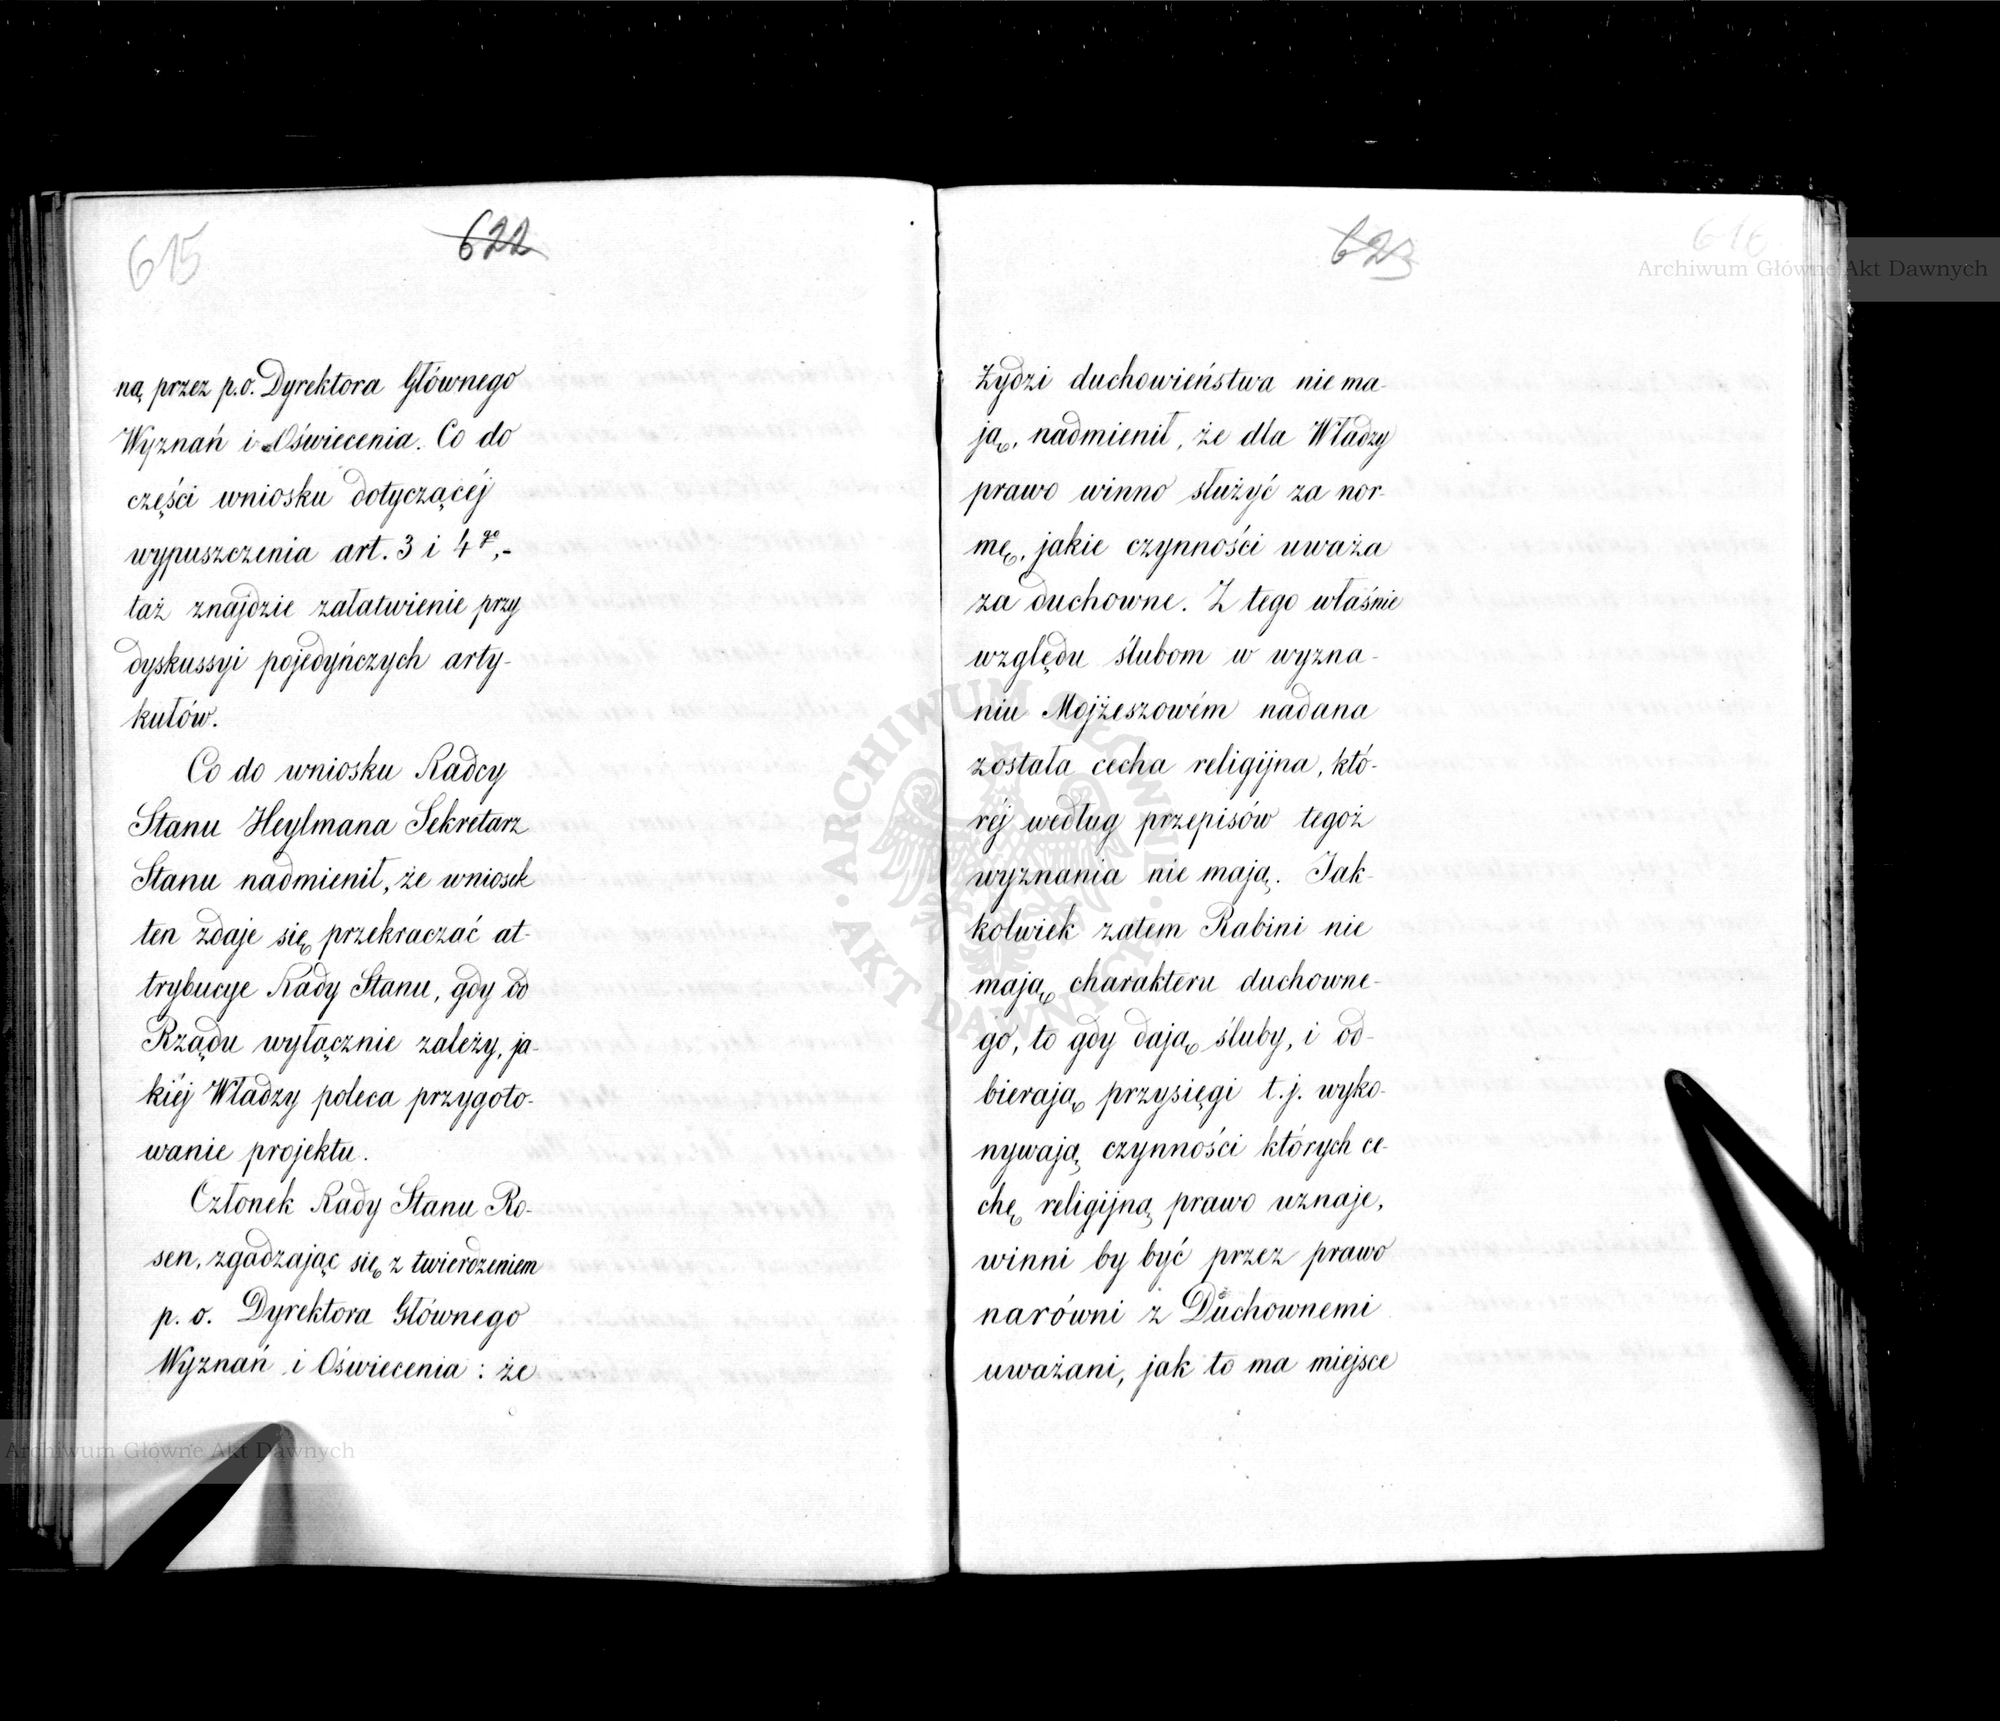 615
622
ną przez p.o. Dyrektora Głównego
Wyznań i Oświecenia. Co do
części wniosku dotyczącéj
wypuszczenia art. 3 i 4go,-
taż znajdzie załatwienie przy
dyskussyi pojedyńczych arty-
kułów.
Co do wniosku Radcy
Stanu Heylmana Sekretarz
Stanu nadmienił, że wniosek
ten zdaje się przekraczać at-
trybucye Rady Stanu, gdy od
Rządu wyłącznie zależy, ja-
kiéj Władzy poleca przygoto-
wanie projektu.
Członek Rady Stanu Ro-
sen, zgadzając się z twierdzeniem
p. o. Dyrektora Głównego
Wyznań i Oświecenia : że
623
616
Żydzi duchowieństwa nie ma-
ją, nadmienił, że dla Władzy
prawo winno służyć za nor-
mę, jakie czynności uważa
za duchowne. Z tego właśnie
względu ślubom w wyzna-
niu Mojżeszowém nadana
została cecha religijna, któ-
réj według przepisów tegoż
wyznania nie mają. Jak-
kolwiek zatem Rabini nie
mają charakteru duchowne-
go, to gdy dają śluby, i od-
bierają przysięgi t.j. wyko-
nywają czynności których ce-
chę religijną prawo uznaje,
winni by być przez prawo
narówni z Duchownemi
uważani, jak to ma miejsce
Archiwum Główne Akt Dawnych
ARCHIWUM GŁÓWNE AKT DAWNYCH
Archiwum Główne Akt Dawnych